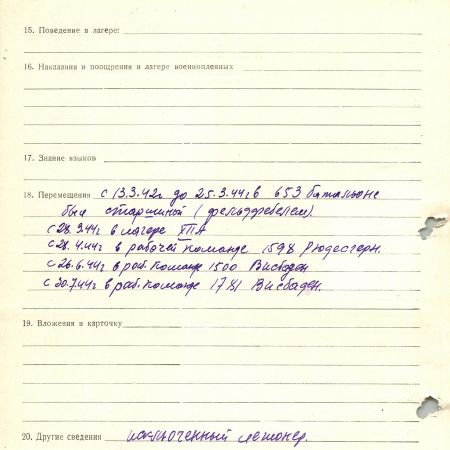 15. Поведение в лагере:
16. Наказания и поощрения в лагере военнопленных
17. Знание языков
18. Перемещения с 13.3.42г до 25.3.44г в 653 батальоне
был старшиной (фельдфебелем).
с 28.3.44г в лагере XIIA
с 28.4.44г в рабочей команде 1598 Рюдесгерм.
с 26.6.44г в раб. команде 1500 Висбаден
с 30.7.44г в раб. команде 1781 Висбаден.
19. Вложения в карточку
20. Другие сведения